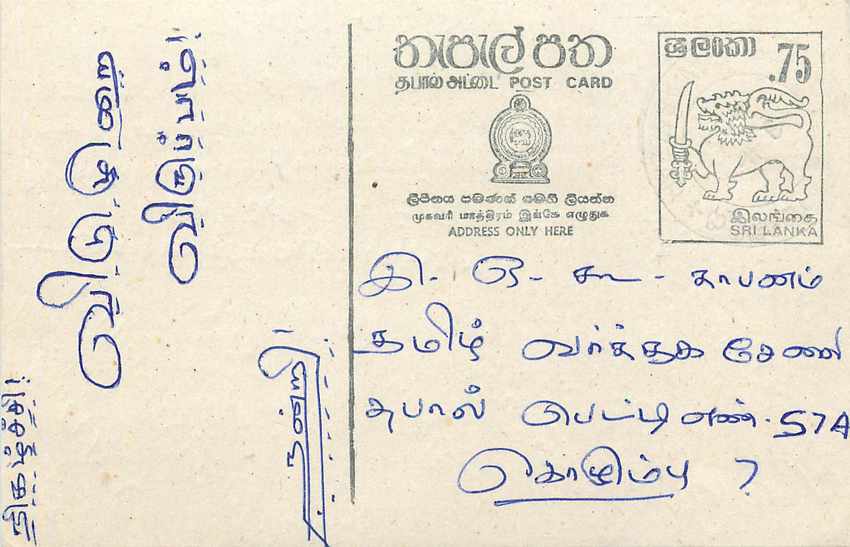 තැපැල් පත
தபால் அட்டை POST CARD
ශ්‍රී ලංකා
.75
இலங்கை
SRI LANKA
ලිපිනය පමණක් මෙහි ලියන්න
முகவரி மாத்திரம் இங்கே எழுதுக
ADDRESS ONLY HERE
இ. ஒ. கூ - தாபனம்
தமிழ் வர்த்தக சேவை
தபால் பெட்டி எண். 574
கொழும்பு 7
நன்றி!
நிகழ்ச்சி!